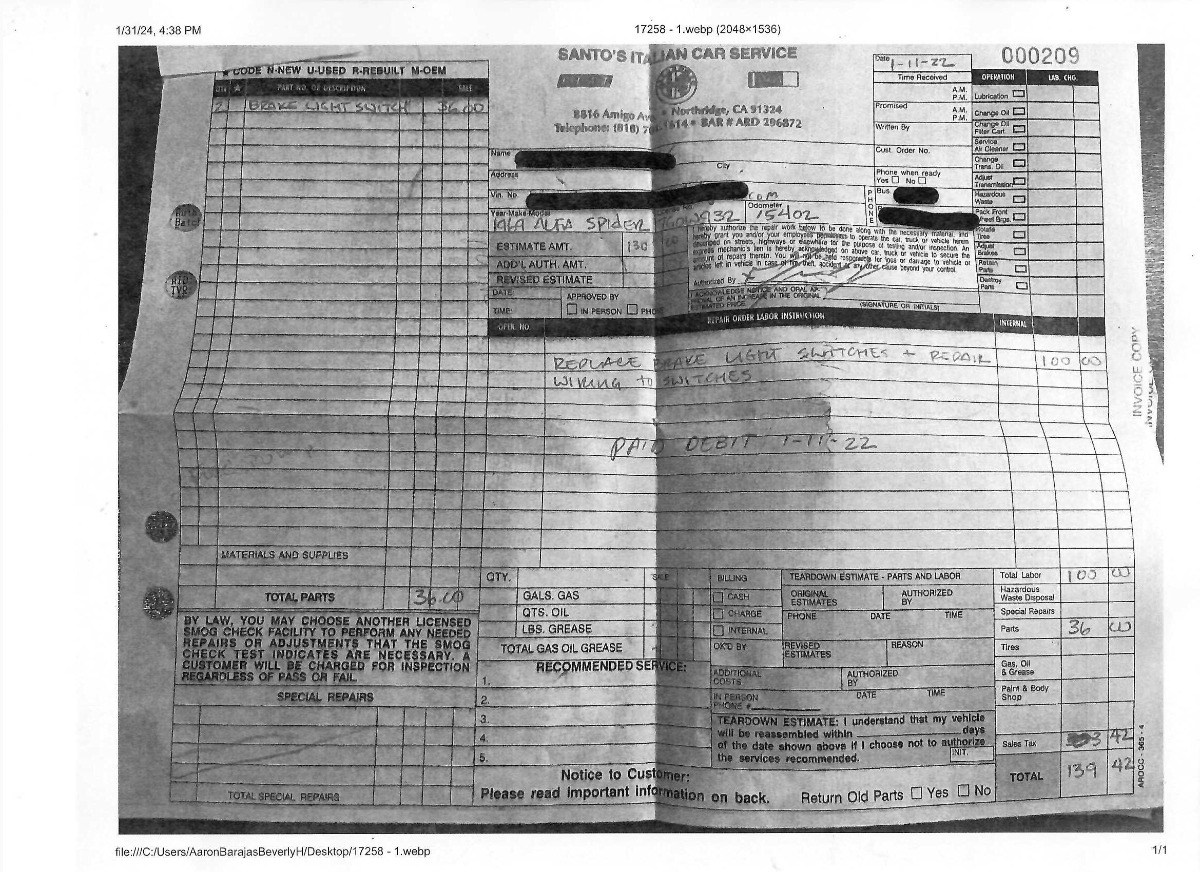 1/31/24, 4:38 PM
17258 - 1.webp (2048×1536)
★ CODE N-NEW U-USED R-REBUILT M-OEM
QTY. ★ PART NO. OR DESCRIPTION SALE
2 BRAKE LIGHT SWITCH 36.00
SANTO'S ITALIAN CAR SERVICE
8816 Amigo Ave • Northridge, CA 91324
Telephone: (818) 1614 • BAR # ARD 296872
Date 1-11-22
000209
Time Received
A.M.
P.M.
Promised
A.M.
P.M.
Written By
Cust. Order No.
Phone when ready
Yes No
PHONE
Bus.
OPERATION LAB. CHG.
Lubrication
Change Oil
Change Oil
Filter Cart.
Service
Air Cleaner
Change
Trans. Oil
Adjust
Transmission
Hazardous
Waste
Pack Front
Wheel Brgs.
Rotate
Tires
Adjust
Brakes
Retain
Parts
Destroy
Parts
Name
Address
City
Vin. No.
Year-Make-Model
1969 ALFA SPIDER
Odometer
15402
ESTIMATE AMT. 130
ADD'L AUTH. AMT.
REVISED ESTIMATE
DATE:
TIME:
APPROVED BY
IN PERSON
I hereby authorize the repair work below to be done along with the necessary material, and
hereby grant you and/or your employees permission to operate the car, truck or vehicle herein
described on streets, highways or elsewhere for the purpose of testing and/or inspection. An
express mechanic's lien is hereby acknowledged on above car, truck or vehicle to secure the
amount of repairs thereto. You will not be held responsible for loss or damage to vehicle or
articles left in vehicle in case of fire, theft, accident or any other cause beyond your control.
Authorized By X
I ACKNOWLEDGE NOTICE AND ORAL AP-
PROVAL OF AN INCREASE IN THE ORIGINAL
ESTIMATED PRICE
(SIGNATURE OR INITIALS)
OPER. NO. REPAIR ORDER LABOR INSTRUCTION INTERNAL
REPLACE BRAKE LIGHT SWITCHES + REPAIR 100 00
WIRING to SWITCHES
PAID DEBIT 1-11-22
INVOICE COPY
MATERIALS AND SUPPLIES
TOTAL PARTS 36.00
BY LAW, YOU MAY CHOOSE ANOTHER LICENSED
SMOG CHECK FACILITY TO PERFORM ANY NEEDED
REPAIRS OR ADJUSTMENTS THAT THE SMOG
CHECK TEST INDICATES ARE NECESSARY. A
CUSTOMER WILL BE CHARGED FOR INSPECTION
REGARDLESS OF PASS OR FAIL
SPECIAL REPAIRS
TOTAL SPECIAL REPAIRS
QTY. SALE
GALS. GAS
QTS. OIL
LBS. GREASE
TOTAL GAS OIL GREASE
RECOMMENDED SERVICE:
1.
2.
3.
4.
5.
BILLING
CASH
CHARGE
INTERNAL
OK'D BY
ADDITIONAL
COSTS
IN PERSON
PHONE #
TEARDOWN ESTIMATE - PARTS AND LABOR
ORIGINAL
ESTIMATES
AUTHORIZED
BY
PHONE DATE TIME
REVISED
ESTIMATES
REASON
AUTHORIZED
BY
DATE TIME
TEARDOWN ESTIMATE: I understand that my vehicle
will be reassembled within days
of the date shown above if I choose not to authorize
the services recommended.
INIT.
Total Labor 100 00
Hazardous
Waste Disposal
Special Repairs
Parts 36 00
Tires
Gas, Oil
& Grease
Paint & Body
Shop
Sales Tax 3 42
TOTAL 139 42
AROCC - 365 - 4
Notice to Customer:
Please read important information on back.
Return Old Parts Yes No
file:///C:/Users/AaronBarajasBeverlyH/Desktop/17258 - 1.webp
1/1